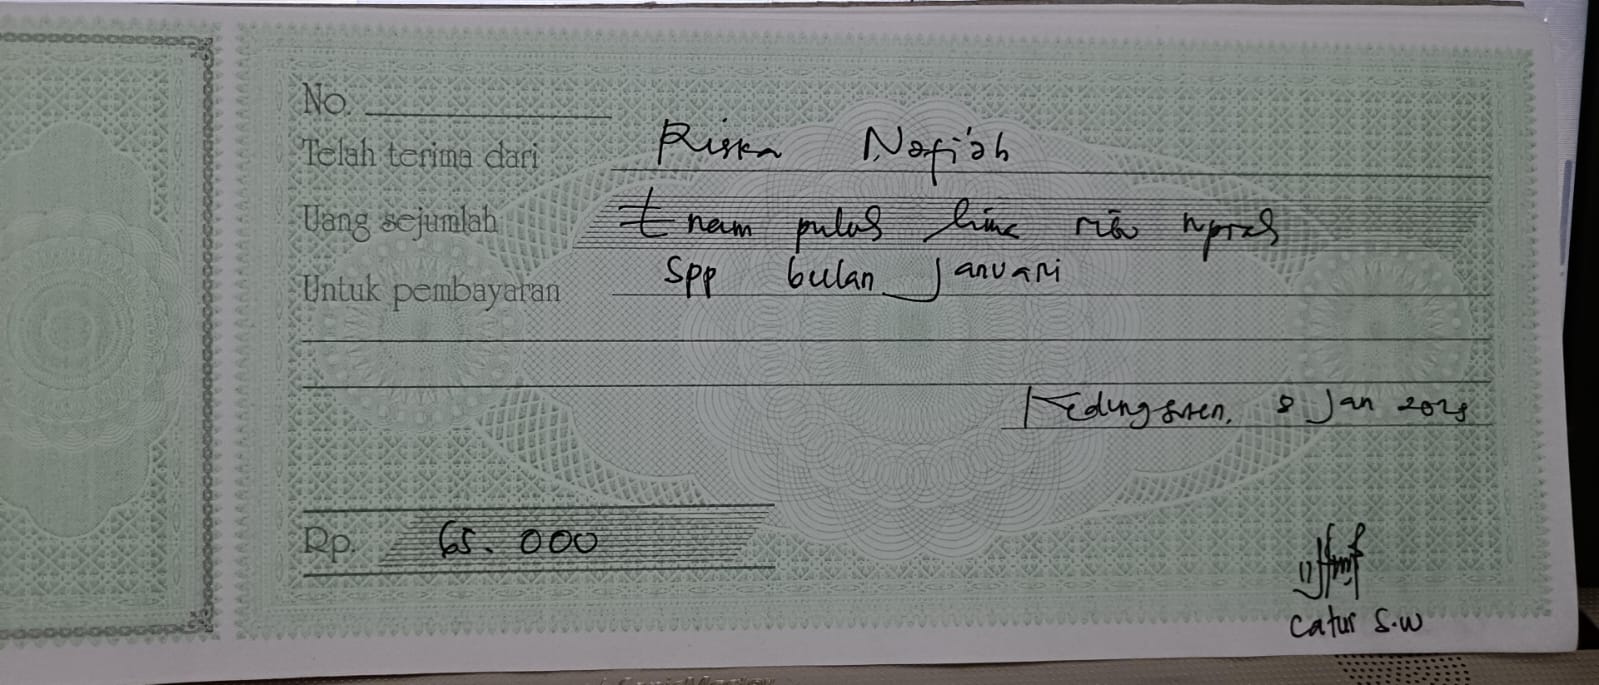 No.
Telah terima dari Riska Nafi'ah
Uang sejumlah Enam puluh lima ribu rupiah
Untuk pembayaran Spp bulan Januari
8 Jan
Rp. 65.000
Catur S.W